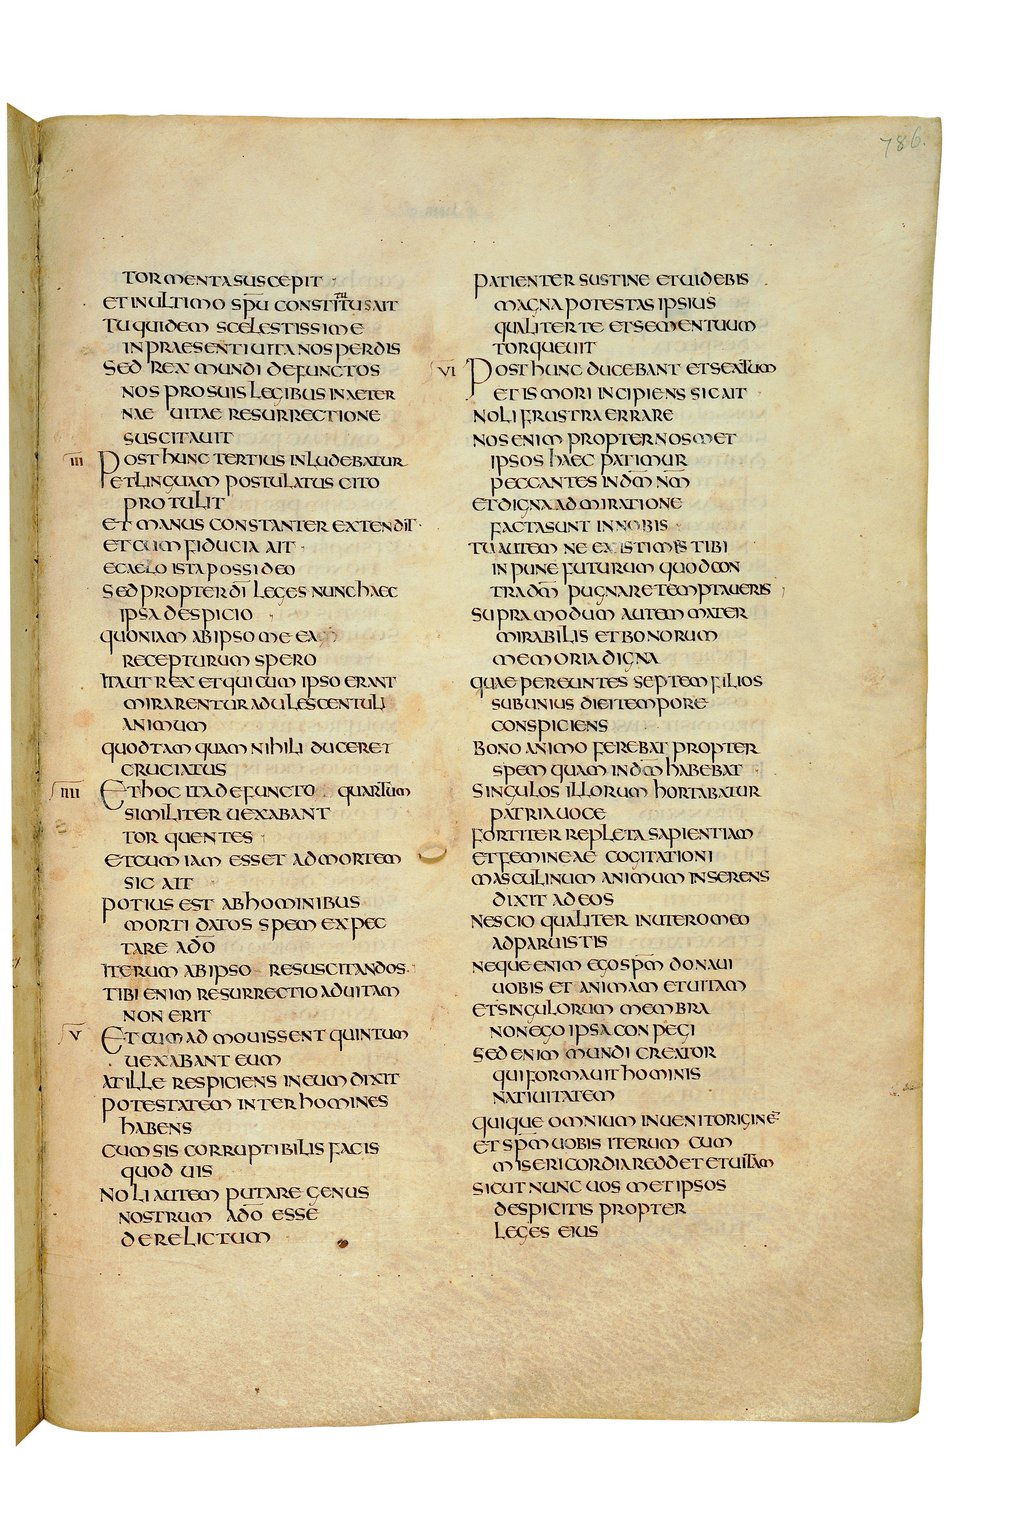 786.
TORMENTA SUSCEPIT
ET IN ULTIMO SPU CONSTITUTUS AIT
TU QUIDEM SCELESTISSIME
IN PRAESENTI UITA NOS PERDIS
SED REX MUNDI DEFUNCTOS
NOS PRO SUIS LEGIBUS IN AETER
NAE UITAE RESURRECTIONE
SUSCITAUIT
III POST HUNC TERTIUS INLUDEBATUR
ET LINGUAM POSTULATUS CITO
PROTULIT
ET MANUS CONSTANTER EXTENDIT
ET CUM FIDUCIA AIT
E CAELO ISTA POSSIDEO
SED PROPTER DI LEGES NUNC HAEC
IPSA DESPICIO
QUONIAM AB IPSO ME EA
RECEPTURUM SPERO
ITA UT REX ET QUI CUM IPSO ERANT
MIRARENTUR ADULESCENTULI
ANIMUM
QUOD TAMQUAM NIHILI DUCERET
CRUCIATUS
IIII ET HOC ITA DEFUNCTO QUARTUM
SIMILITER UEXABANT
TORQUENTES
ET CUM IAM ESSET AD MORTEM
SIC AIT
POTIUS EST AB HOMINIBUS
MORTI DATOS SPEM EXPEC
TARE A DO
ITERUM AB IPSO RESUSCITANDOS
TIBI ENIM RESURRECTIO AD UITAM
NON ERIT
V ET CUM ADMOUISSENT QUINTUM
UEXABANT EUM
AT ILLE RESPICIENS IN EUM DIXIT
POTESTATEM INTER HOMINES
HABENS
CUM SIS CORRUPTIBILIS FACIS
QUOD UIS
NOLI AUTEM PUTARE GENUS
NOSTRUM A DO ESSE
DERELICTUM
PATIENTER SUSTINE ET UIDEBIS
MAGNA POTESTAS IPSIUS
QUALITER TE ET SEMEN TUUM
TORQUEUIT
VI POST HUNC DUCEBANT ET SEXTUM
ET IS MORI INCIPIENS SIC AIT
NOLI FRUSTRA ERRARE
NOS ENIM PROPTER NOSMET
IPSOS HAEC PATIMUR
PECCANTES IN DM NM
ET DIGNA ADMIRATIONE
FACTA SUNT IN NOBIS
TU AUTEM NE EXISTIMES TIBI
INPUNE FUTURUM QUOD CON
TRA DM PUGNARE TEMPTAUERIS
SUPRA MODUM AUTEM MATER
MIRABILIS ET BONORUM
MEMORIA DIGNA
QUAE PEREUNTES SEPTEM FILIOS
SUB UNIUS DIEI TEMPORE
CONSPICIENS
BONO ANIMO FEREBAT PROPTER
SPEM QUAM IN DM HABEBAT
SINGULOS ILLORUM HORTABATUR
PATRIA UOCE
FORTITER REPLETA SAPIENTIAM
ET FEMINEAE COGITATIONI
MASCULINUM ANIMUM INSERENS
DIXIT AD EOS
NESCIO QUALITER IN UTERO MEO
ADPARUISTIS
NEQUE ENIM EGO SPM DONAUI
UOBIS ET ANIMAM ET UITAM
ET SINGULORUM MEMBRA
NON EGO IPSA CONPEGI
SED ENIM MUNDI CREATOR
QUI FORMAUIT HOMINIS
NATIUITATEM
QUIQUE OMNIUM INUENIT ORIGINE
ET SPM UOBIS ITERUM CUM
MISERICORDIA REDDET ET UITAM
SICUT NUNC UOSMET IPSOS
DESPICITIS PROPTER
LEGES EIUS